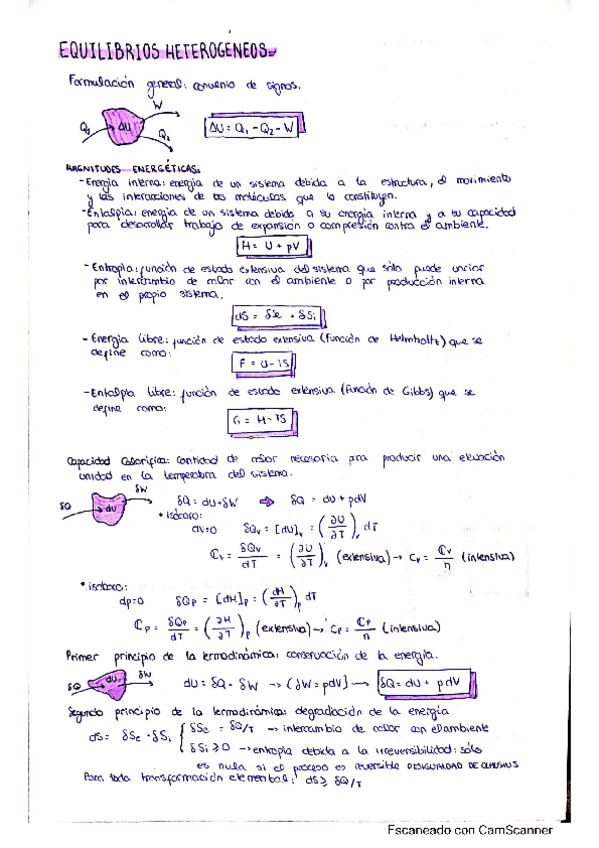 EQUILIBRIOS HETEROGENEOS
Formulación general: convenio de signos.
W
Q₁ ΔU Q₂
ΔU = Q₁ - Q₂ - W
MAGNITUDES ENERGÉTICAS:
- Energía interna: energía de un sistema debida a la estructura, el movimiento
y las interacciones de las moléculas que lo constituyen.
- Entalpia: energía de un sistema debido a su energía interna y a su capacidad
para desarrollar trabajo de expansión o compresión contra el ambiente.
H = U + pV
- Entropía: función de estado extensiva del sistema que sólo puede variar
por intercambio de calor con el ambiente o por producción interna
en el propio sistema.
dS = δSe + δSi
- Energía libre: función de estado extensiva (función de Helmholtz) que se
define como:
F = U - TS
- Entalpía libre: función de estado extensiva (función de Gibbs) que se
define como:
G = H - TS
Capacidad Calorífica: cantidad de calor necesaria para producir una elevación
unidad en la temperatura del sistema.
δQ dU δW δQ = dU + δW ⇨ δQ = dU + pdV
• isócoro:
dV=0 δQv = [dU]v = (∂U/∂T)v dT
Cv = δQv/dT = (∂U/∂T)v (extensiva) → Cv = Cv/n (intensiva)
• isóbaro:
dp=0 δQp = [dH]p = (dH/∂T)p dT
Cp = δQp/dT = (∂H/∂T)p (extensiva) → Cp = Cp/n (intensiva)
Primer principio de la termodinámica: conservación de la energía.
δQ dU δW dU = δQ - δW → (δW = pdV) → δQ = dU + pdV
Segundo principio de la termodinámica: degradación de la energía
dS = δSe + δSi { δSe = δQ/T → intercambio de calor con el ambiente
δSi ≥ 0 → entropía debida a la irreversibilidad: sólo
es nula si el proceso es reversible DESIGUALDAD DE CLAUSIUS
Para toda transformación elemental: dS ≥ δQ/T
Escaneado con CamScanner